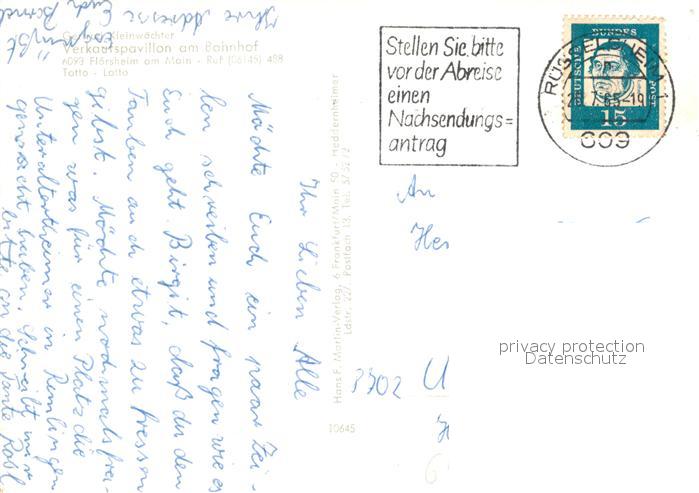 Gerhard Kleinwächter
Verkaufspavillon am Bahnhof
6093 Flörsheim am Main - Ruf (06145) 488
Totto - Lotto
Stellen Sie, bitte
vor der Abreise
einen
Nachsendungs=
antrag
RÜSSELSHEIM
609
DEUTSCHE BUNDESPOST
15
Ihr Lieben Alle
Möchte Euch ein paar Zei-
len schreiben und fragen wie es
Euch geht. Birgit, daß du den
Tauben auch etwas zu fressen
gibst. Möchte nochmals fra-
gen was für einen Platz die
Unteraltertheimer in Remlingen
gemacht haben. Schreibt mir
bitte an die Tante
Ihre Adresse
Es grüßt
Euch
Hans F. Martin-Verlag, 6 Frankfurt/Main 50 - Heddernheimer
Ldstr. 22, Postfach 13, Tel.
10645
An
3302 U
privacy protection
Datenschutz